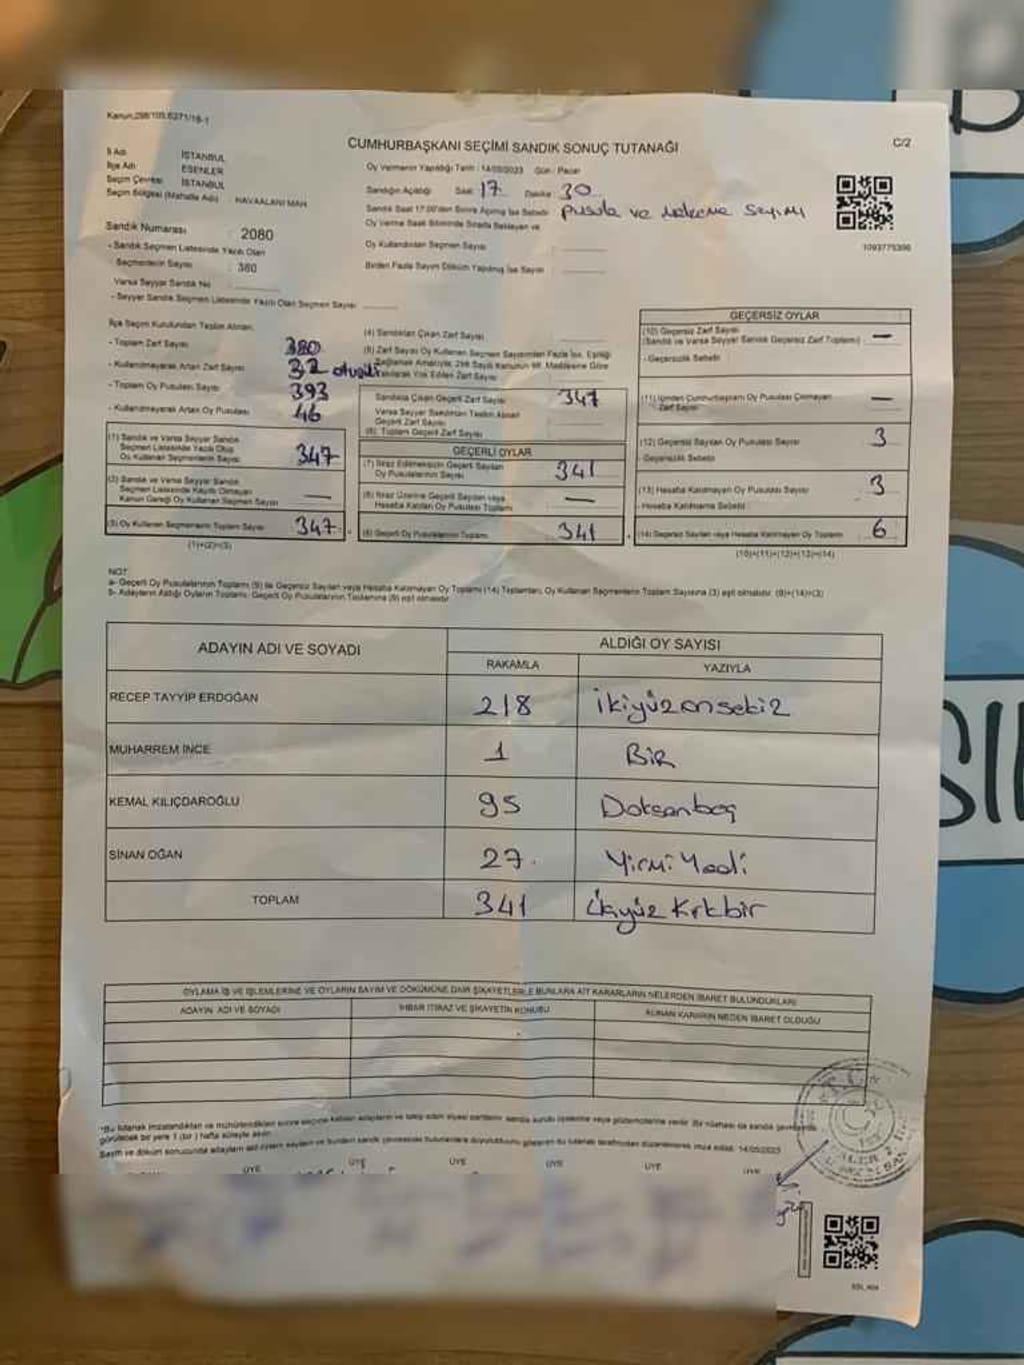 Kanun:298/105,6271/18-1
CUMHURBAŞKANI SEÇİMİ SANDIK SONUÇ TUTANAĞI
C/2
İl Adı : İSTANBUL
İlçe Adı : ESENLER
Seçim Çevresi : İSTANBUL
Seçim Bölgesi (Mahalle Adı) : HAVAALANI MAH
Oy Vermenin Yapıldığı Tarih : 14/05/2023 Gün : Pazar
Sandığın Açıldığı Saat: 17 Dakika 30
Sandık Saat 17:00'den Sonra Açılmış İse Sebebi: pusula ve malzeme sayımı
Oy Verme Saati Bitiminde Sırada Bekleyen ve
Oy Kullandırılan Seçmen Sayısı
Birden Fazla Sayım Döküm Yapılmış İse Sayısı
1093775396
Sandık Numarası : 2080
- Sandık Seçmen Listesinde Yazılı Olan
Seçmenlerin Sayısı : 380
Varsa Seyyar Sandık No
- Seyyar Sandık Seçmen Listesinde Yazılı Olan Seçmen Sayısı
İlçe Seçim Kurulundan Teslim Alınan;
- Toplam Zarf Sayısı 380
- Kullanılmayarak Artan Zarf Sayısı 32
- Toplam Oy Pusulası Sayısı 393
- Kullanılmayarak Artan Oy Pusulası 46
(1) Sandık ve Varsa Seyyar Sandık
Seçmen Listesinde Yazılı Olup
Oy Kullanan Seçmenlerin Sayısı 347
(2) Sandık ve Varsa Seyyar Sandık
Seçmen Listesinde Kayıtlı Olmayan
Kanun Gereği Oy Kullanan Seçmen Sayısı —
(3) Oy Kullanan Seçmenlerin Toplam Sayısı 347
(1)+(2)=(3)
(4) Sandıktan Çıkan Zarf Sayısı
(5) Zarf Sayısı Oy Kullanan Seçmen Sayısından Fazla İse, Eşitliği
Sağlamak Amacıyla; 298 Sayılı Kanunun 98. Maddesine Göre
Yakılarak Yok Edilen Zarf Sayısı
Sandıkta Çıkan Geçerli Zarf Sayısı 347
Varsa Seyyar Sandıktan Teslim Alınan
Geçerli Zarf Sayısı
(6) Toplam Geçerli Zarf Sayısı
GEÇERLİ OYLAR
(7) İtiraz Edilmeksizin Geçerli Sayılan
Oy Pusulalarının Sayısı 341
(8) İtiraz Üzerine Geçerli Sayılan veya
Hesaba Katılan Oy Pusulası Toplamı —
(9) Geçerli Oy Pusulalarının Toplamı 341
GEÇERSİZ OYLAR
(10) Geçersiz Zarf Sayısı
(Sandık ve Varsa Seyyar Sandık Geçersiz Zarf Toplamı) —
- Geçersizlik Sebebi
(11) İçinden Cumhurbaşkanı Oy Pusulası Çıkmayan
Zarf Sayısı —
(12) Geçersiz Sayılan Oy Pusulası Sayısı 3
- Geçersizlik Sebebi
(13) Hesaba Katılmayan Oy Pusulası Sayısı 3
- Hesaba Katılmama Sebebi
(14) Geçersiz Sayılan veya Hesaba Katılmayan Oy Toplamı 6
(10)+(11)+(12)+(13)=(14)
NOT:
a- Geçerli Oy Pusulalarının Toplamı (9) ile Geçersiz Sayılan veya Hesaba Katılmayan Oy Toplamı (14) Toplamları, Oy Kullanan Seçmenlerin Toplam Sayısına (3) eşit olmalıdır. (9)+(14)=(3)
b- Adayların Aldığı Oyların Toplamı, Geçerli Oy Pusulalarının Toplamına (9) eşit olmalıdır.
ADAYIN ADI VE SOYADI
ALDIĞI OY SAYISI
RAKAMLA YAZIYLA
RECEP TAYYİP ERDOĞAN 218 ikiyüzonsekiz
MUHARREM İNCE 1 Bir
KEMAL KILIÇDAROĞLU 95 Doksanbeş
SİNAN OĞAN 27 Yirmi Yedi
TOPLAM 341 Üçyüz Kırkbir
OYLAMA İŞ VE İŞLEMLERİNE VE OYLARIN SAYIM VE DÖKÜMÜNE DAİR ŞİKAYETLERLE BUNLARA AİT KARARLARIN NELERDEN İBARET BULUNDUKLARI
ADAYIN ADI VE SOYADI
İHBAR İTİRAZ VE ŞİKAYETİN KONUSU
ALINAN KARARIN NEDEN İBARET OLDUĞU
ÜYE ÜYE ÜYE ÜYE ÜYE ÜYE